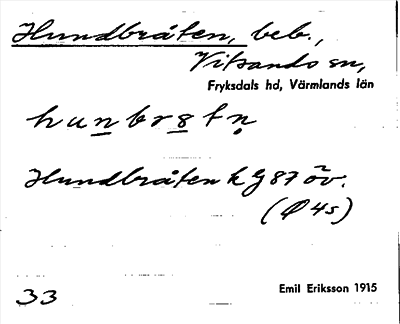 Hundbråten, beb.,
Vitsands sn,
Fryksdals hd, Värmlands län
hunbr8tn
Hundbråten k J 87 öv.
(Ø 4s)
33
Emil Eriksson 1915